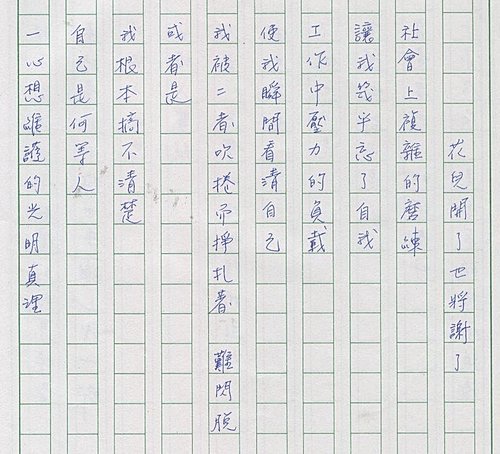 花兒開了也將謝了
社會上複雜的磨練
讓我幾乎忘了自我
工作中壓力的負載
使我瞬間看清自己
我被二者吹捲而掙扎著 難閃脫
或者是
我根本搞不清楚
自己是何等人
一心想維護的光明真理